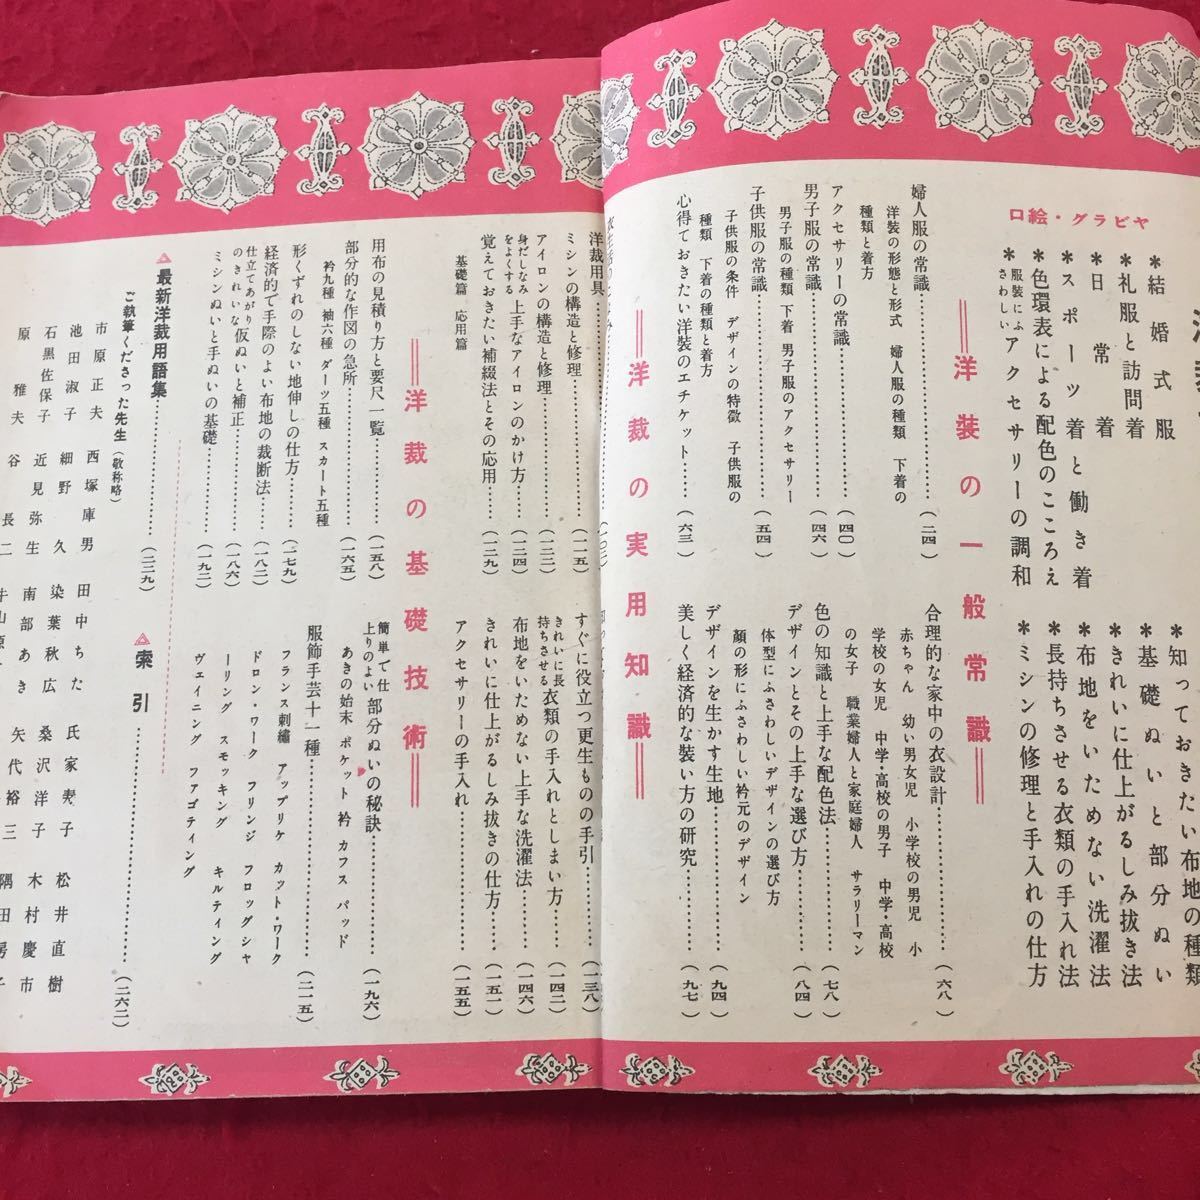 口絵・グラビヤ
＊結婚式服
＊礼服と訪問着
＊日常着
＊スポーツ着と働き着
＊色環表による配色のこころえ
＊服装にふさわしいアクセサリーの調和
＊知っておきたい布地の種類
＊基礎ぬいと部分ぬい
＊きれいに仕上がるしみ抜き法
＊布地をいためない洗濯法
＊長持ちさせる衣類の手入れ法
＊ミシンの修理と手入れの仕方
洋装の一般常識
婦人服の常識………(二四)
洋装の形態と形式 婦人服の種類 下着の
種類と着方
アクセサリーの常識………(四〇)
男子服の常識………(四六)
男子服の種類 下着 男子服のアクセサリー
子供服の常識………(五四)
子供服の条件 デザインの特徴 子供服の
種類 下着の種類と着方
心得ておきたい洋装のエチケット………(六三)
合理的な家中の衣設計………(六八)
赤ちゃん 幼い男女児 小学校の男児 小
学校の女児 中学・高校の男子 中学・高校
の女子 職業婦人と家庭婦人 サラリーマン
色の知識と上手な配色法………(七八)
デザインとその上手な選び方………(八四)
体型にふさわしいデザインの選び方
顔の形にふさわしい衿元のデザイン
デザインを生かす生地………(九四)
美しく経済的な装い方の研究………(九七)
洋裁の実用知識
洋裁用具………(一一五)
ミシンの構造と修理………(一二二)
アイロンの構造と修理………(一三二)
身だしなみをよくする上手なアイロンのかけ方………(一二四)
覚えておきたい補綴法とその応用………(一二九)
基礎篇 応用篇
すぐに役立つ更生ものの手引………(一三八)
きれいに長持ちさせる衣類の手入れとしまい方………(一四二)
布地をいためない上手な洗濯法………(一四六)
きれいに仕上がるしみ抜きの仕方………(一五一)
アクセサリーの手入れ………(一五五)
洋裁の基礎技術
用布の見積り方と要尺一覧………(一五八)
部分的な作図の急所………(一六五)
衿九種 袖六種 ダーツ五種 スカート五種
形くずれのしない地伸しの仕方………(一七九)
経済的で手際のよい布地の裁断法………(一八二)
仕立てあがりのきれいな仮ぬいと補正………(一八六)
ミシンぬいと手ぬいの基礎………(一九二)
簡単で仕上りのよい部分ぬいの秘訣………(一九六)
あきの始末 ポケット 衿 カフス パッド
服飾手芸十一種………(二一五)
フランス刺繡 アップリケ カット・ワーク
ドロン・ワーク フリンジ フロッグシャ
ーリング スモッキング キルティング
ヴェイニング ファゴティング
最新洋裁用語集………(二三九)
索引………(二六二)
ご執筆くださった先生(敬称略)
市原正夫
池田淑子
石黒佐保子
原雅夫
西塚庫男
細野久
近見弥生
谷長二
田中ちた
染葉秋広
南部あき
氏家寿子
桑沢洋子
矢代裕三
松井直樹
木村慶市